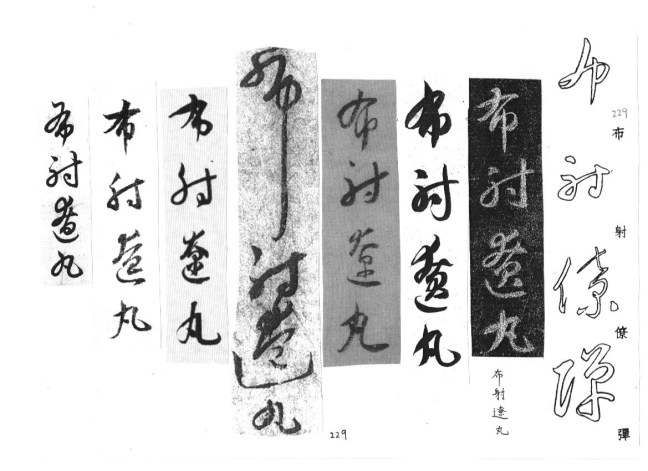 布射僚彈
229
布
射
僚
彈
布射遼丸
布射遼丸
布射遼丸
布射遼丸
布射遼丸
229
布射遼丸
布射遼丸
布射遼丸